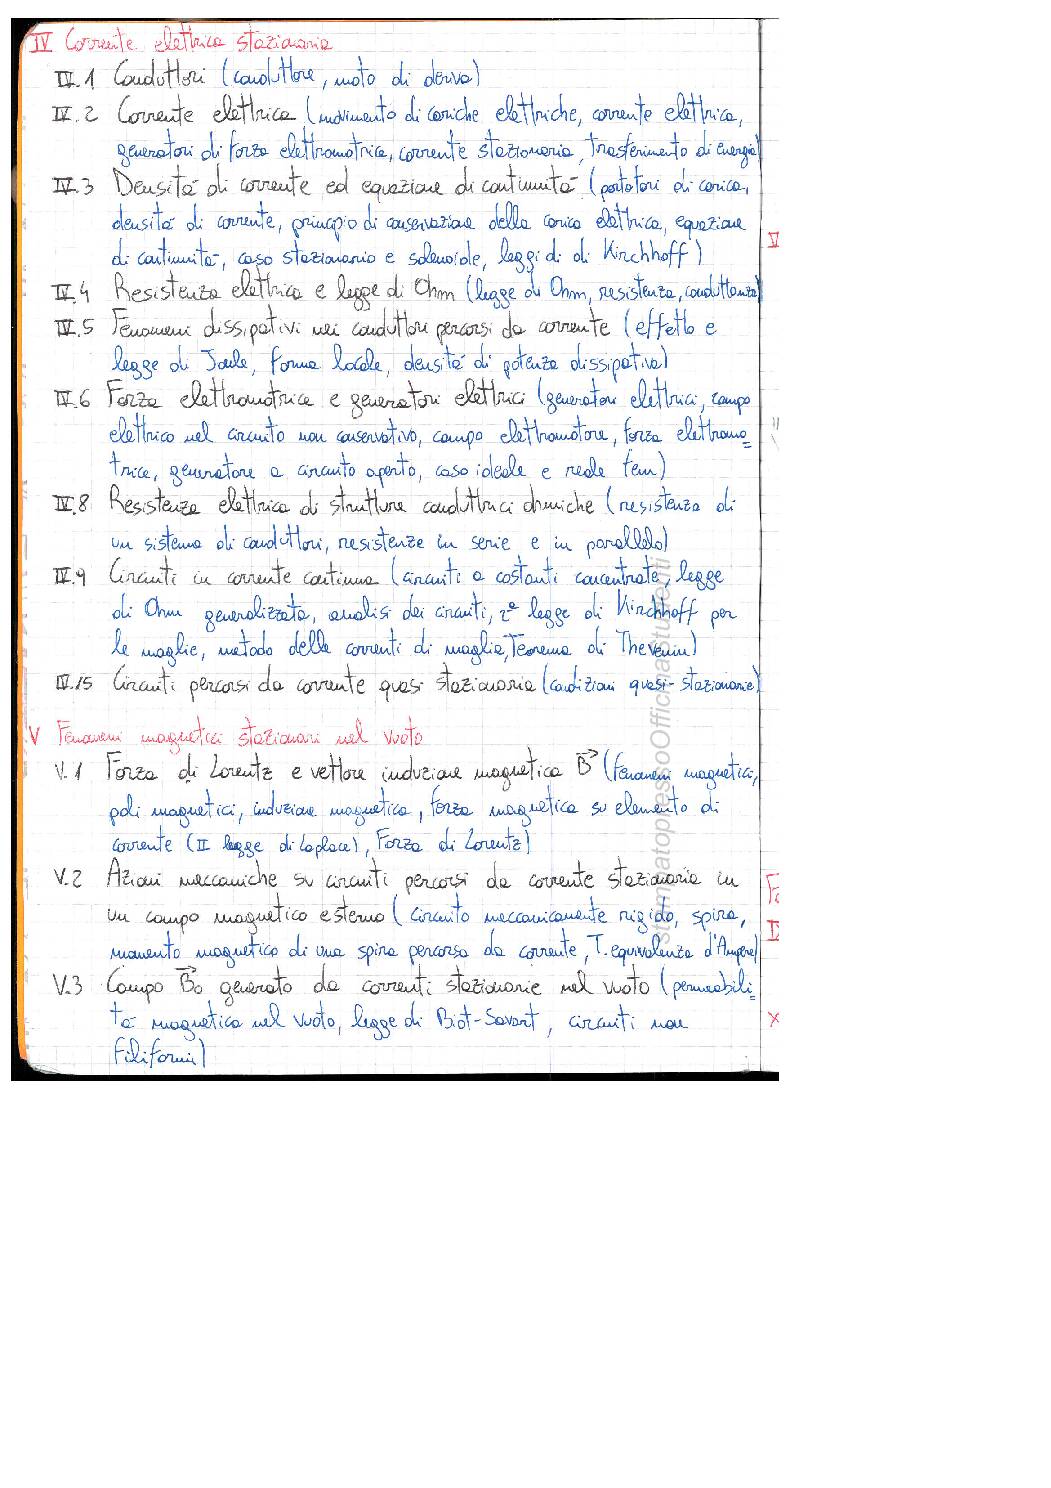 IV Corrente elettrica stazionaria
IV.1 Conduttori (conduttore, moto di deriva)
IV.2 Corrente elettrica (movimento di cariche elettriche, corrente elettrica,
generatori di forza elettromotrice, corrente stazionaria, trasferimento di energia)
IV.3 Densità di corrente ed equazione di continuità (portatori di carica,
densità di corrente, principio di conservazione della carica elettrica, equazione
di continuità, caso stazionario e solenoide, leggi di di Kirchhoff)
IV.4 Resistenza elettrica e legge di Ohm (legge di Ohm, resistenza, conduttanza)
IV.5 Fenomeni dissipativi nei conduttori percorsi da corrente (effetto e
legge di Joule, forma locale, densità di potenza dissipativa)
IV.6 Forza elettromotrice e generatori elettrici (generatori elettrici, campo
elettrico nel circuito non conservativo, campo elettromotore, forza elettromo=
trice, generatore a circuito aperto, caso ideale e reale fem)
IV.8 Resistenza elettrica di strutture conduttrici ohmiche (resistenza di
un sistema di conduttori, resistenze in serie e in parallelo)
IV.9 Circuiti in corrente continua (circuiti a costanti concentrate, legge
di Ohm generalizzata, analisi dei circuiti, 2ª legge di Kirchhoff per
le maglie, metodo delle correnti di maglia, Teorema di Thevenin)
IV.15 Circuiti percorsi da corrente quasi stazionaria (condizioni quasi-stazionarie)
V Fenomeni magnetici stazionari nel vuoto
V.1 Forza di Lorentz e vettore induzione magnetica B⃗ (fenomeni magnetici,
poli magnetici, induzione magnetica, forza magnetica su elemento di
corrente (II legge di Laplace), Forza di Lorentz)
V.2 Azioni meccaniche su circuiti percorsi da corrente stazionaria in
un campo magnetico esterno (circuito meccanicamente rigido, spira,
momento magnetico di una spira percorsa da corrente, T. equivalenza d'Ampere)
V.3 Campo B⃗₀ generato da correnti stazionarie nel vuoto (permeabili=
tà magnetica nel vuoto, legge di Biot-Savart, circuiti non
filiformi)